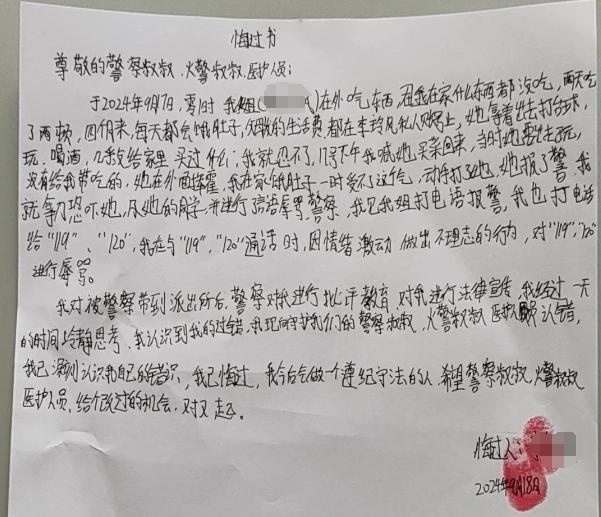 悔过书
尊敬的警察叔叔、火警叔叔、医护人员:
于2024年9月17日,零时 我姐( )在外吃东西,因我在家什么东西都没吃,两天吃
了两顿,四个月来,每天都会饿肚子,父母的生活费都在李玲凤私人账号上,她拿着去打台球,
玩、喝酒,几乎没给家里买过什么;我就忍不了,17号下午我喊她买菜回来,当时她要出去玩,
没有给我带吃的,她在外面 ,我在家饿肚子一时受不了这个气,动手打了她,她报了警,我
就拿刀恐吓她,及她的 ,并进行言语辱骂警察,我见我姐打电话报警,我也打电话
给"119"、"120",我在与"119","120"通话时,因情绪激动做出不理志的行为,对"119","120"
进行辱骂。
我对被警察带到派出所后,警察对我进行批评教育,对我进行法律宣传,我经过一天
的时间冷静思考、我认识到我的过错,我现向守护我们的警察叔叔,火警叔叔医护人员认错,
我已深刻认识我自己的错识,我已悔过,我今后会做一个遵纪守法的人,希望警察叔叔,火警叔叔
医护人员,给个改过的机会,对不起。
悔过人:
2024年9月18日